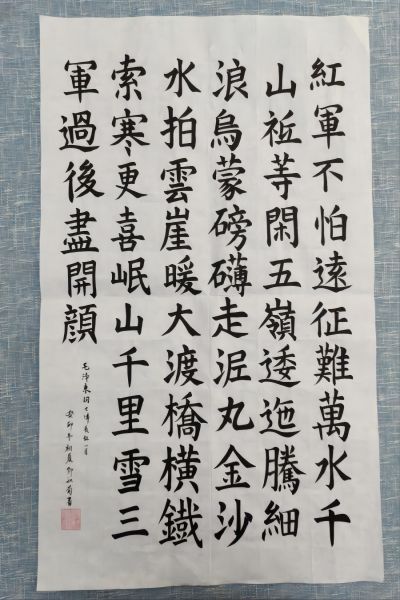 紅軍不怕遠征難萬水千
山祗等閑五嶺逶迤騰細
浪烏蒙磅礴走泥丸金沙
水拍雲崖暖大渡橋橫鐵
索寒更喜岷山千里雪三
軍過後盡開顏
毛澤東詞七律長征一首
癸卯年初夏